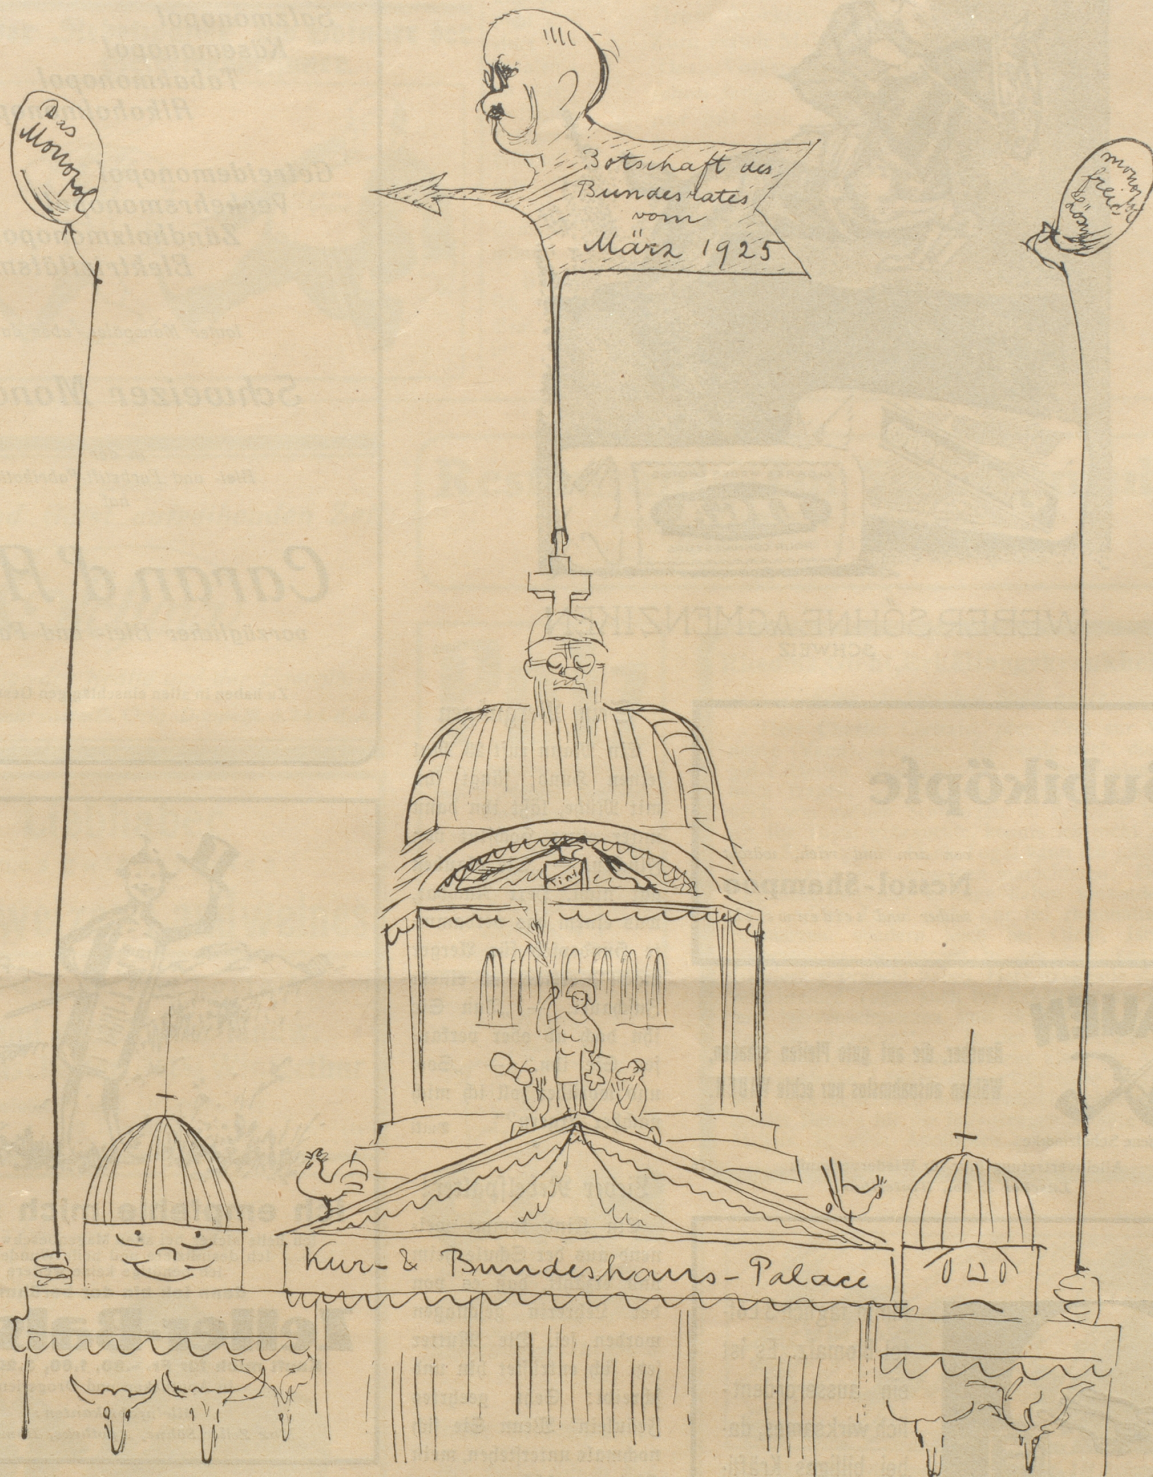 Das
Monopol
Botschaft des
Bundesrates
vom
März 1925
monopol
freie
Lösung
Kur- & Bundeshaus-Palace